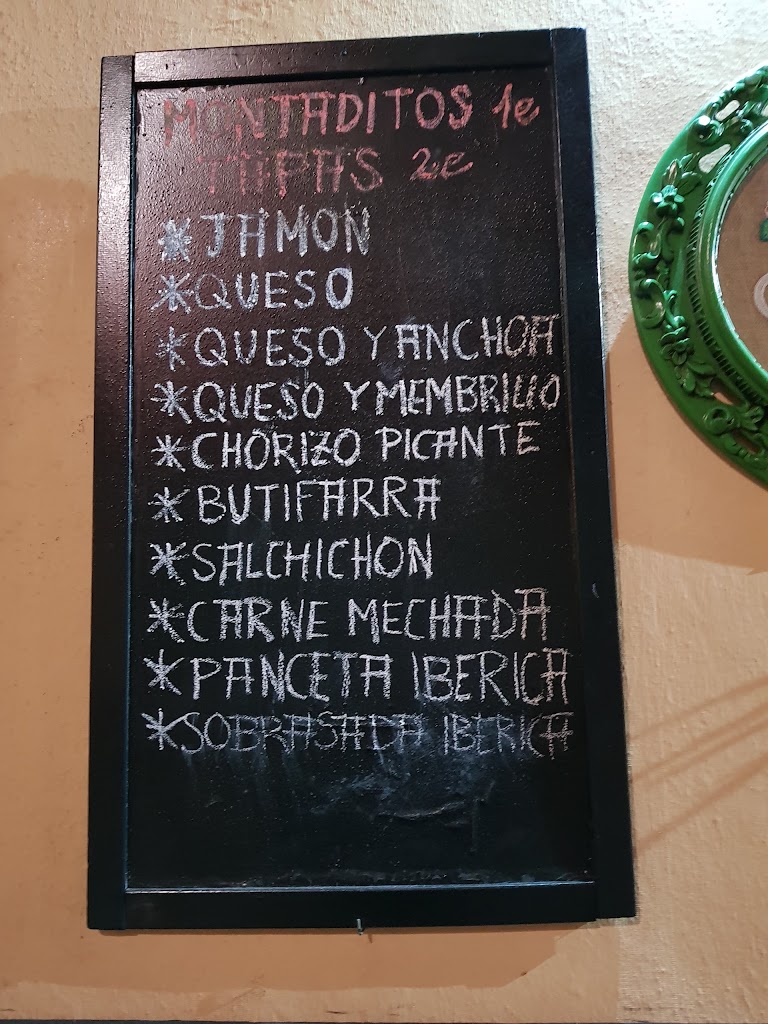 MONTADITOS 1e
TAPAS 2e
*JAMON
*QUESO
*QUESO Y ANCHOA
*QUESO Y MEMBRILLO
*CHORIZO PICANTE
*BUTIFARRA
*SALCHICHON
*CARNE MECHADA
*PANCETA IBERICA
*SOBRASADA IBERICA